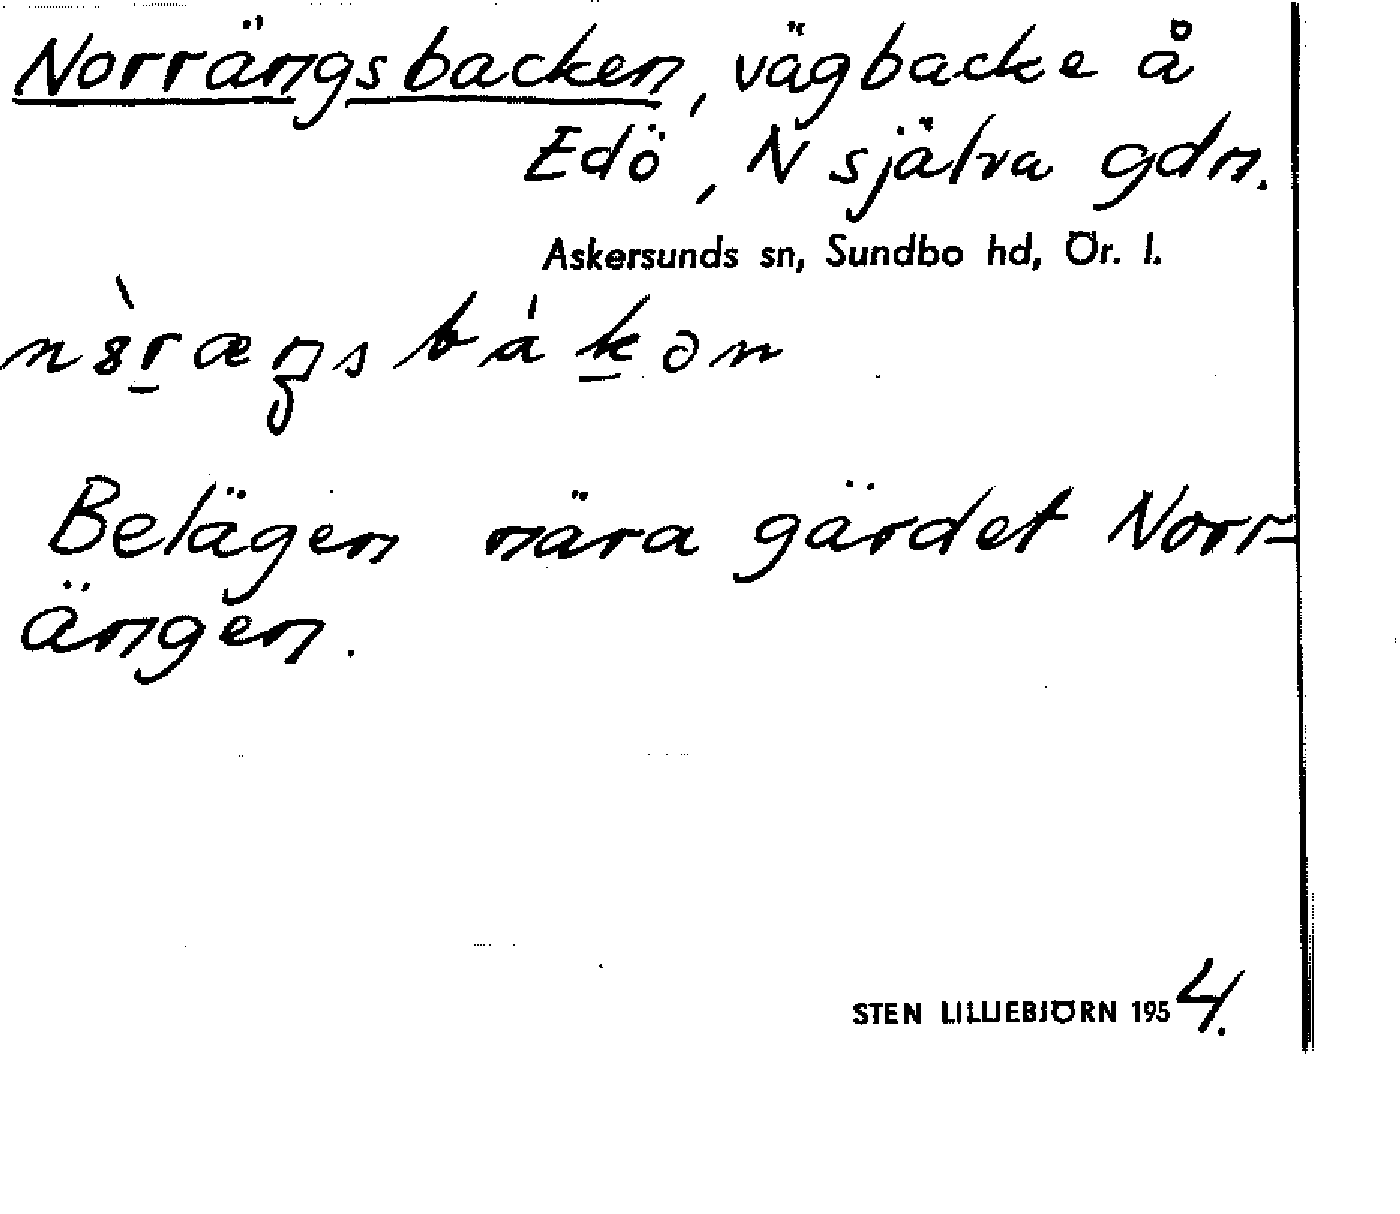 Norrängsbacken, vägbacke å
Edö, N själva gdn.
Askersunds sn, Sundbo hd, Ör. l.
Belägen nära gärdet Norr-
ängen.
STEN LILLIEBJÖRN 1954.